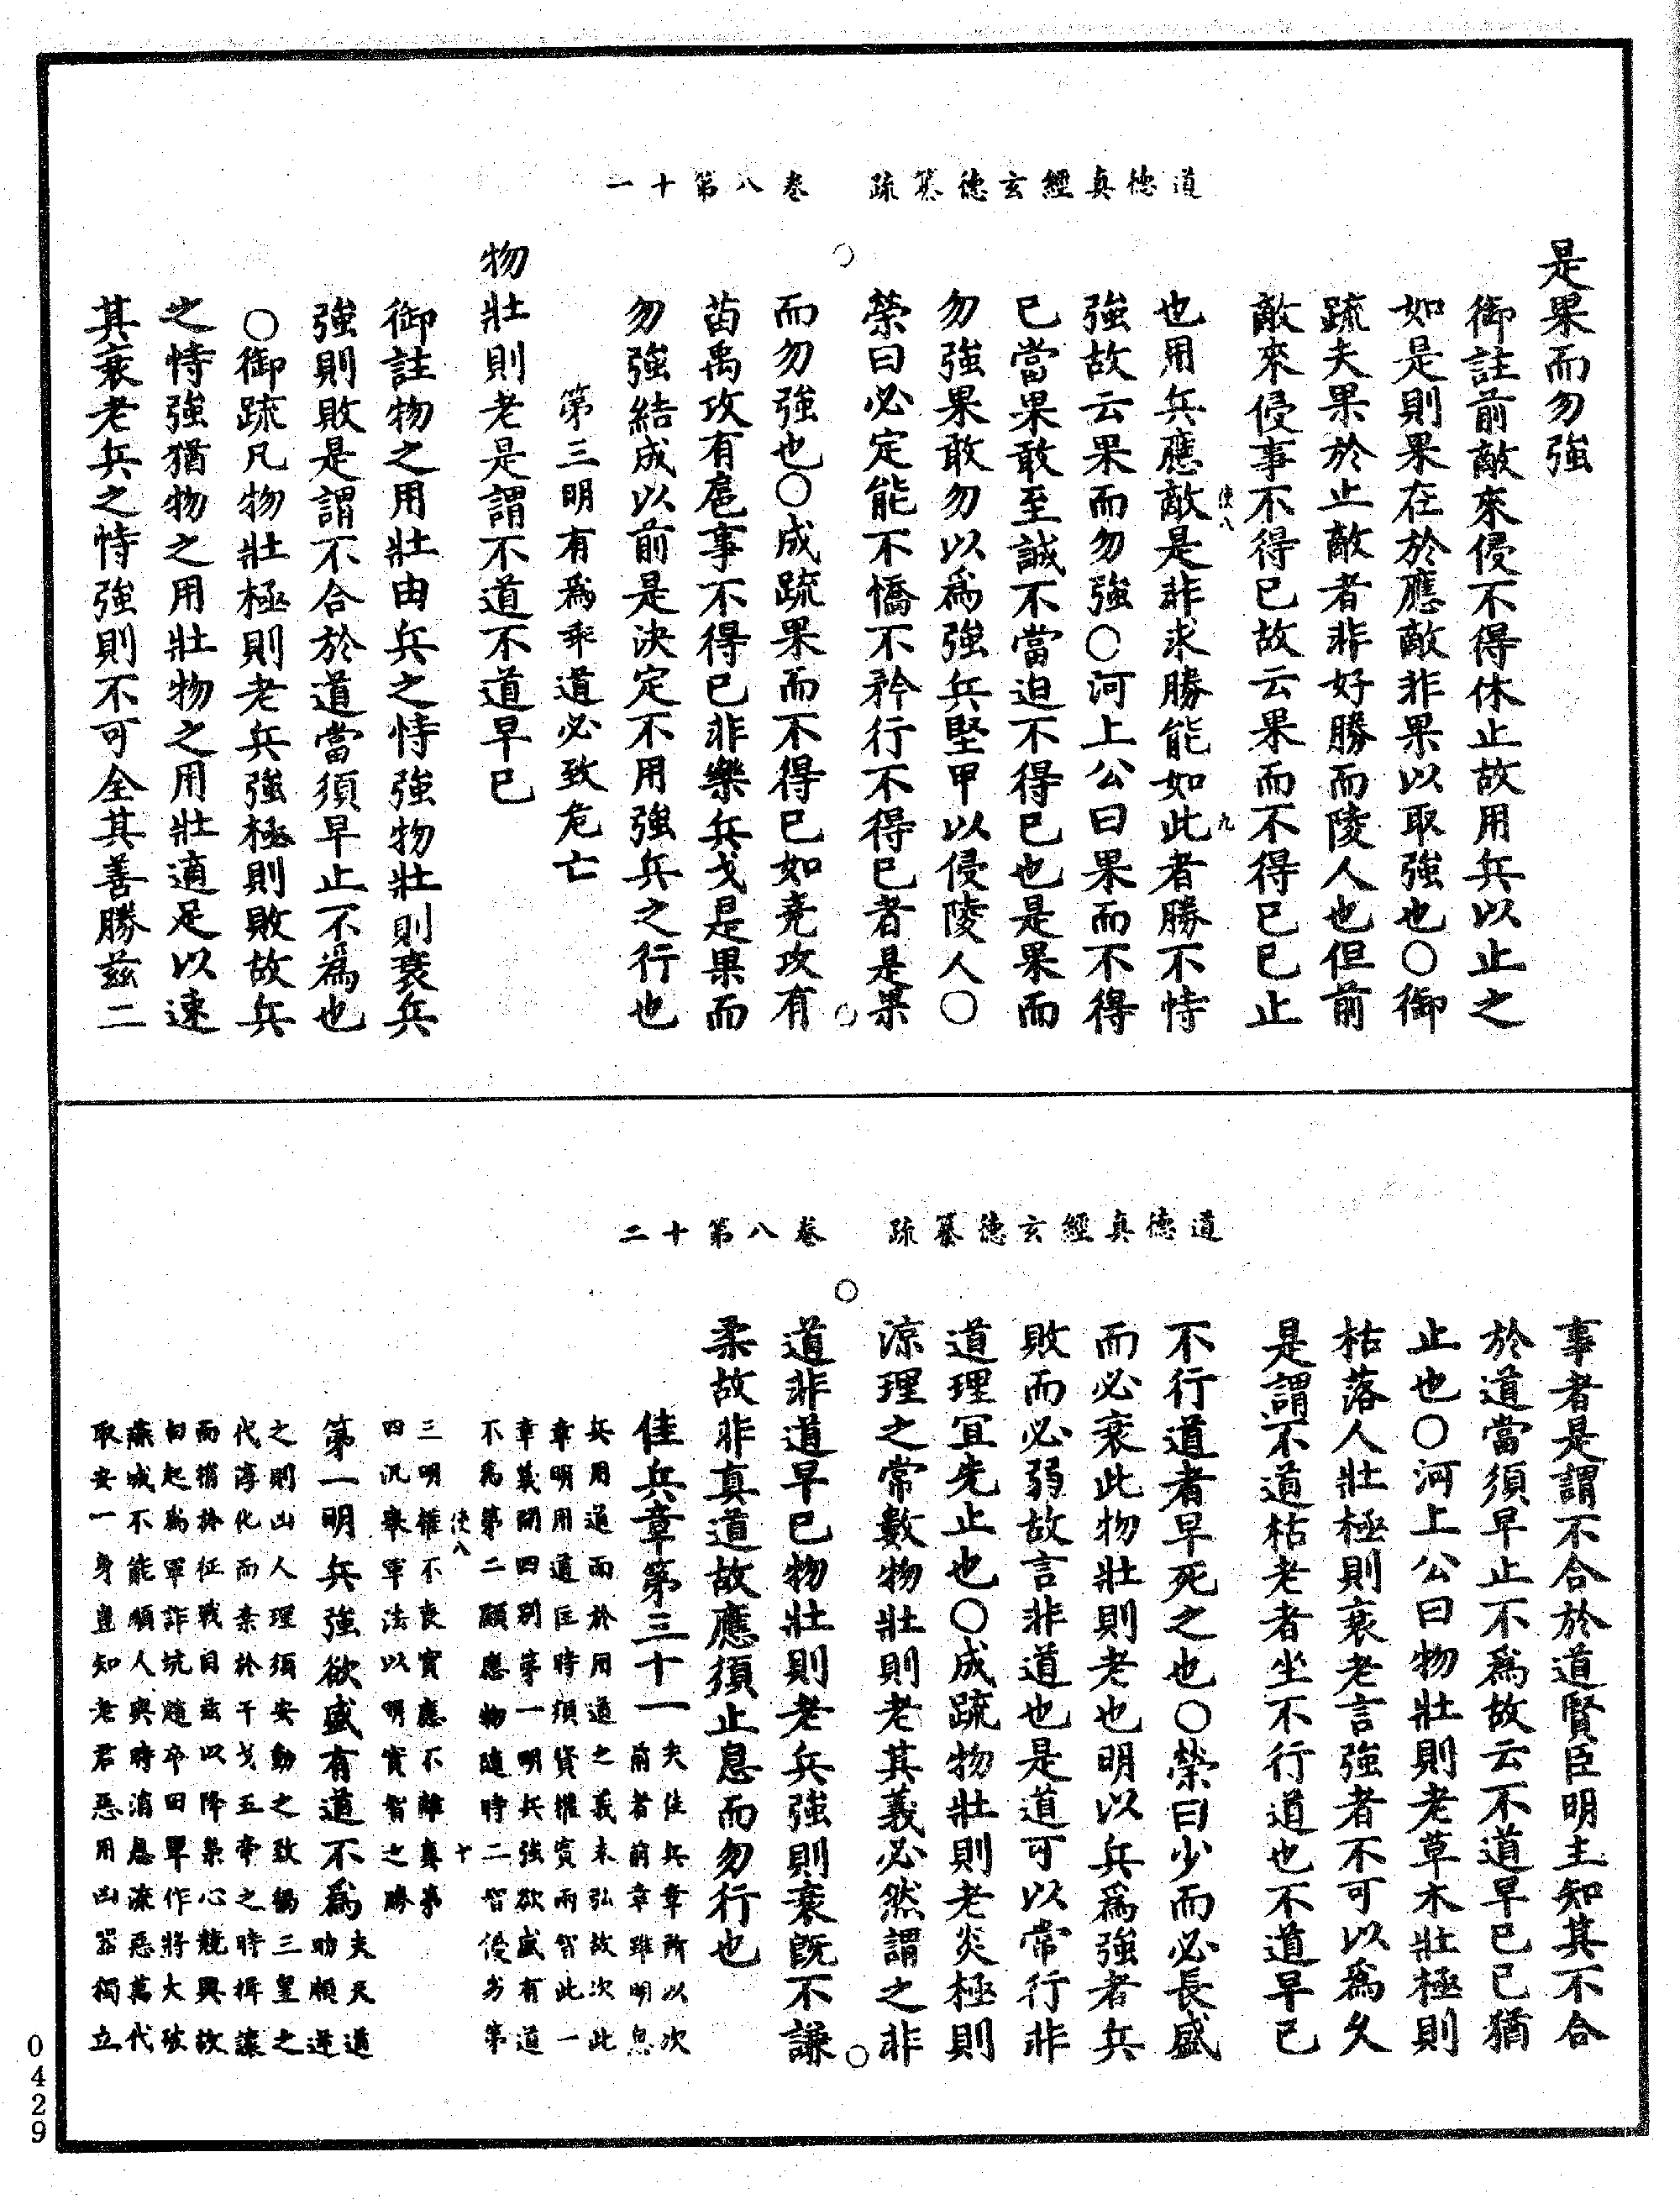 道德真經玄德纂疏　卷八第十一
是果而勿強
御註前敵來侵不得休止故用兵以止之
如是則果在於應敵非果以取強也○御
疏夫果於止敵者非好勝而陵人也但前
敵來侵事不得已故云果而不得已已止
也用兵應敵是非求勝能如此者勝不恃
強故云果而勿強○河上公曰果而不得
已當果敢至誠不當迫不得已也是果而
勿強果敢勿以為強兵堅甲以侵陵人○
榮曰必定能不憍不矜行不得已者是果
而勿強也○成疏果而不得已如堯攻有
苗禹攻有扈事不得已非樂兵戈是果而
勿強結成以前是決定不用強兵之行也
第三明有為乖道必致危亡
物壯則老是謂不道不道早已
御註物之用壯由兵之恃強物壯則衰兵
強則敗是謂不合於道當須早止不為也
○御疏凡物壯極則老兵強極則敗故兵
之恃強猶物之用壯物之用壯適足以速
其衰老兵之恃強則不可全其善勝茲二
道德真經玄德纂疏　卷八第十二
事者是謂不合於道賢臣明主知其不合
於道當須早止不為故云不道早已已猶
止也○河上公曰物壯則老草木壯極則
枯落人壯極則衰老言強者不可以為久
是謂不道枯老者坐不行道也不道早已
不行道者早死之也○榮曰少而必長盛
而必衰此物壯則老也明以兵為強者兵
敗而必弱故言非道也是道可以常行非
道理宜先止也○成疏物壯則老炎極則
涼理之常數物壯則老其義必然謂之非
道非道早已物壯則老兵強則衰既不謙
柔故非真道故應須止息而勿行也
佳兵章第三十一
夫佳兵章所以次
前者前章雖明息
兵用道而於用道之義未弘故次此
章明用道匡時須貸權實兩智此一
章義開四別第一明兵強欲盛有道
不為第二顯應物隨時二智優劣第
三明權不喪實應不離真第
四汎舉軍法以明實智之勝
第一明兵強欲盛有道不為
夫天道
助順逆
之則凶人理須安動之致禍三皇之
代淳化而柔於干戈五帝之時揖讓
而猶於征戰自茲以降梟心競興故
白起為軍詐坑趙卒田單作將大破
燕城不能順人與時消息深惡萬代
取安一身豈知老君惡用凶器獨立
0429